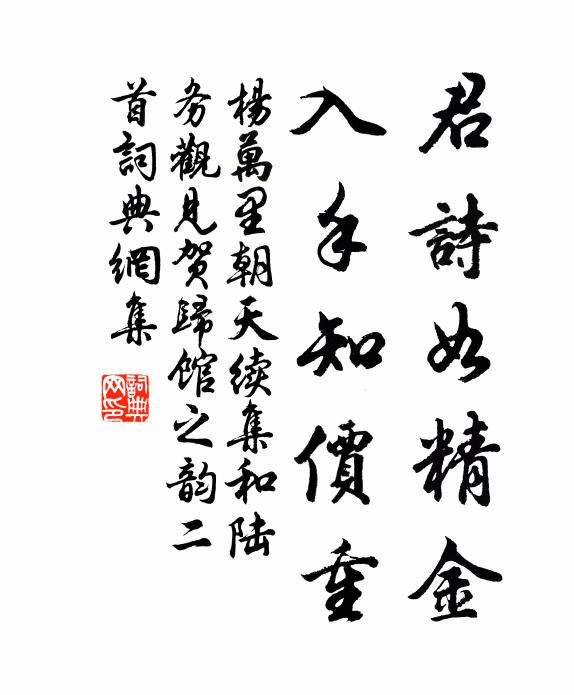 君詩如精金
入手知價重
楊萬里朝天續集和陸
务觀見贺歸館之韵二
首詞典網集
詞典
网印